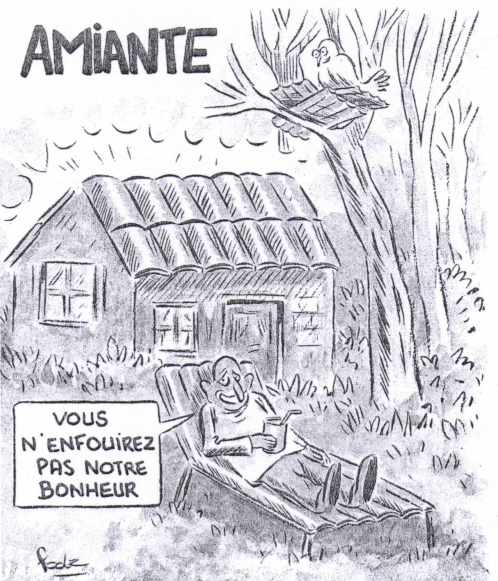 AMiANTE
VOUS
N'ENFOUIREZ
PAS NOTRE
BONHEUR